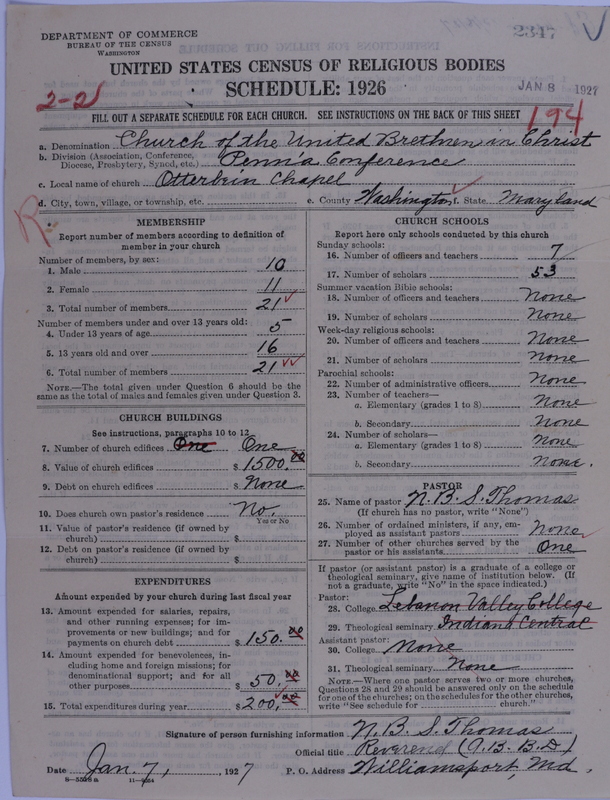 2347
DEPARTMENT OF COMMERCE
BUREAU OF THE CENSUS
WASHINGTON
UNITED STATES CENSUS OF RELIGIOUS BODIES
SCHEDULE: 1926
JAN 8 1927
2-2
194
FILL OUT A SEPARATE SCHEDULE FOR EACH CHURCH. SEE INSTRUCTIONS ON THE BACK OF THIS SHEET
a. Denomination Church of the United Brethren in Christ
b. Division (Association, Conference, Diocese, Presbytery, Synod, etc.) Penna Conference
c. Local name of church Otterbein Chapel
d. City, town, village, or township, etc. e. County Washington f. State Maryland
R
MEMBERSHIP
Report number of members according to definition of
member in your church
Number of members, by sex:
1. Male 10
2. Female 11
3. Total number of members 21
Number of members under and over 13 years old:
4. Under 13 years of age 5
5. 13 years old and over 16
6. Total number of members 21
NOTE.—The total given under Question 6 should be
same as the total of males and females given under Question 3.
CHURCH BUILDINGS
See instructions, paragraphs 10 to 12
7. Number of church edifices One One
8. Value of church edifices $ 1500.00
9. Debt on church edifices $ None
10. Does church own pastor's residence No.
Yes or No
11. Value of pastor's residence (if owned by
church) $
12. Debt on pastor's residence (if owned by
church) $
EXPENDITURES
Amount expended by your church during last fiscal year
13. Amount expended for salaries, repairs,
and other running expenses; for im-
provements or new buildings; and for
payments on church debt $ 150.00
14. Amount expended for benevolences, in-
cluding home and foreign missions; for
denominational support; and for all
other purposes $ 50.00
15. Total expenditures during year $ 200.00
CHURCH SCHOOLS
Report here only schools conducted by this church
Sunday schools:
16. Number of officers and teachers 7
17. Number of scholars 53
Summer vacation Bible schools:
18. Number of officers and teachers None
19. Number of scholars None
Week-day religious schools:
20. Number of officers and teachers None
21. Number of scholars None
Parochial schools:
22. Number of administrative officers None
23. Number of teachers—
a. Elementary (grades 1 to 8) None
b. Secondary None
24. Number of scholars—
a. Elementary (grades 1 to 8) None
b. Secondary None.
PASTOR
25. Name of pastor N. B. S. Thomas
(If church has no pastor, write "None")
26. Number of ordained ministers, if any, em-
ployed as assistant pastors None
27. Number of other churches served by the
pastor or his assistants One
If pastor (or assistant pastor) is a graduate of a college or
theological seminary, give name of institution below. (If
not a graduate, write "No" in the space indicated.)
Pastor:
28. College Lebanon Valley College
29. Theological seminary Indiana Central
Assistant pastor:
30. College None
31. Theological seminary None
NOTE.—Where one pastor serves two or more churches,
Questions 28 and 29 should be answered only on the schedule
for one of the churches; on the schedules for the other churches,
write "See schedule for church."
Signature of person furnishing information N. B. S. Thomas
Official title Reverend (A.B. B.D)
Date Jan. 7, 1927 P. O. Address Williamsport, Md.